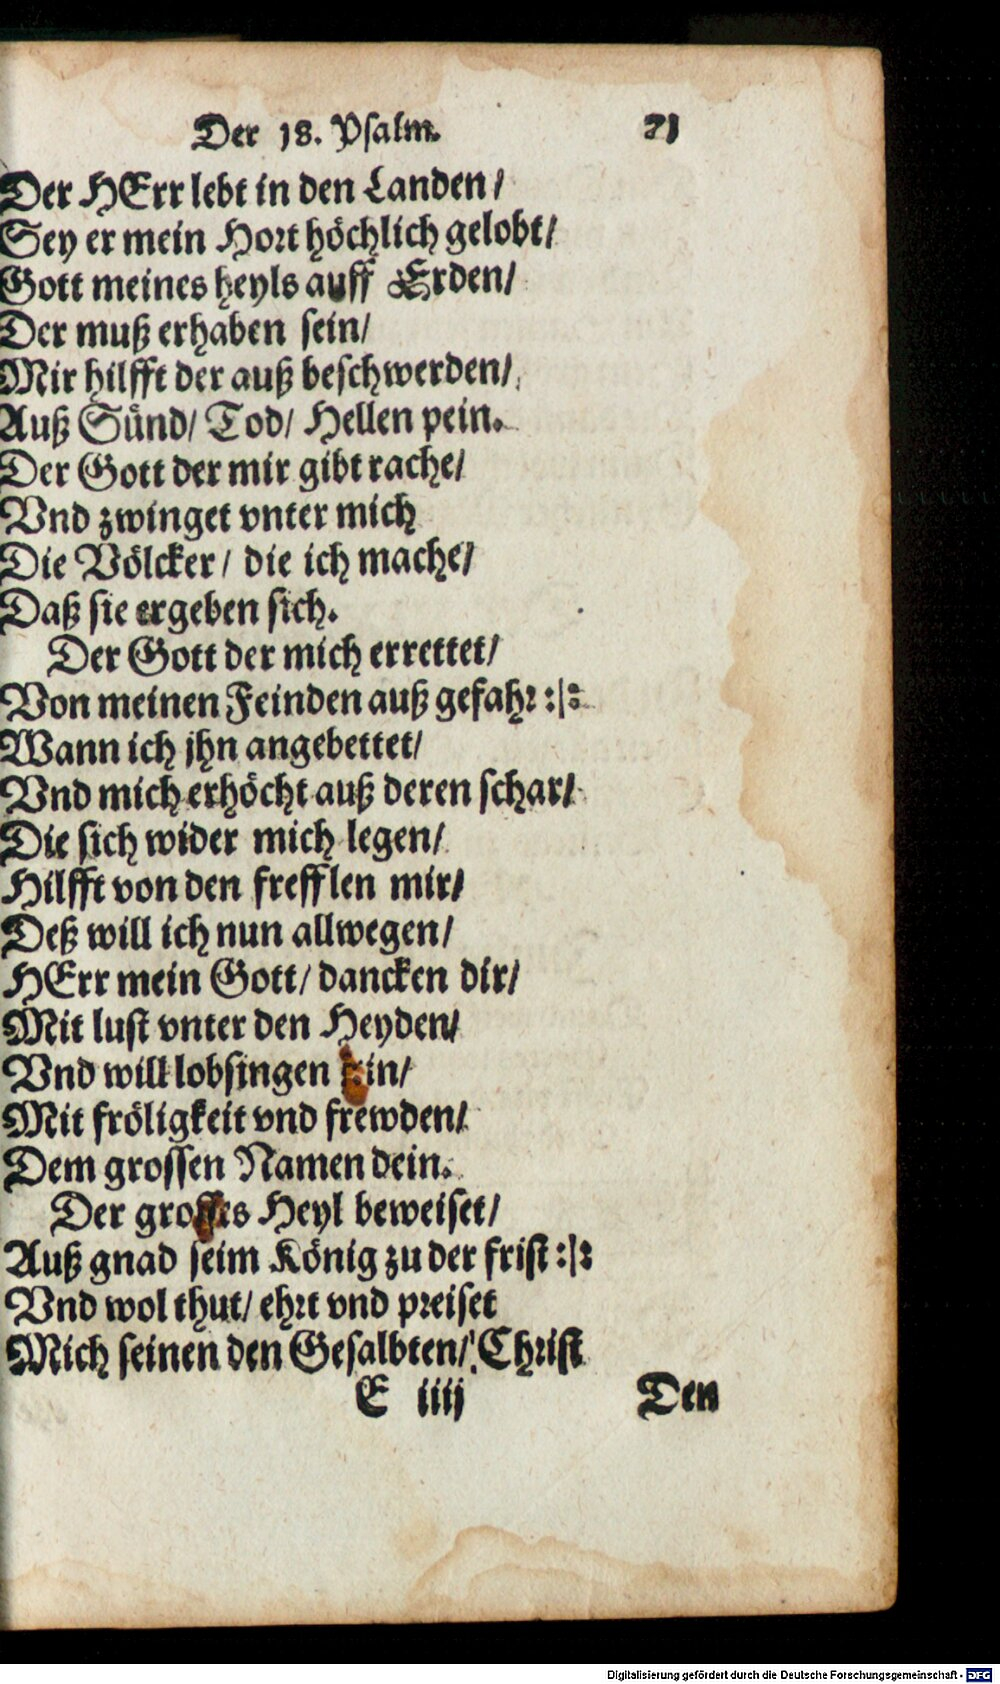 Der 18. Psalm. 71
Der HErr lebt in den Landen/
Sey er mein Hort höchlich gelobt/
Gott meines heyls auff Erden/
Der muß erhaben sein/
Mir hilfft der auß beschwerden/
Auß Sünd/ Tod/ Hellen pein.
Der Gott der mir gibt rache/
Vnd zwinget vnter mich
Die Völcker/ die ich mache/
Daß sie ergeben sich.
Der Gott der mich errettet/
Von meinen Feinden auß gefahr :|:
Wann ich jhn angebettet/
Vnd mich erhöcht auß deren schar/
Die sich wider mich legen/
Hilfft von den frefflen mir/
Deß will ich nun allwegen/
HErr mein Gott/ dancken dir/
Mit lust vnter den Heyden/
Vnd will lobsingen fein/
Mit fröligkeit vnd frewden/
Dem grossen Namen dein.
Der grosses Heyl beweiset/
Auß gnad seim König zu der frist :|:
Vnd wol thut/ ehrt vnd preiset
Mich seinen den Gesalbten/ Christ
E iiij Den
Digitalisierung gefördert durch die Deutsche Forschungsgemeinschaft - DFG